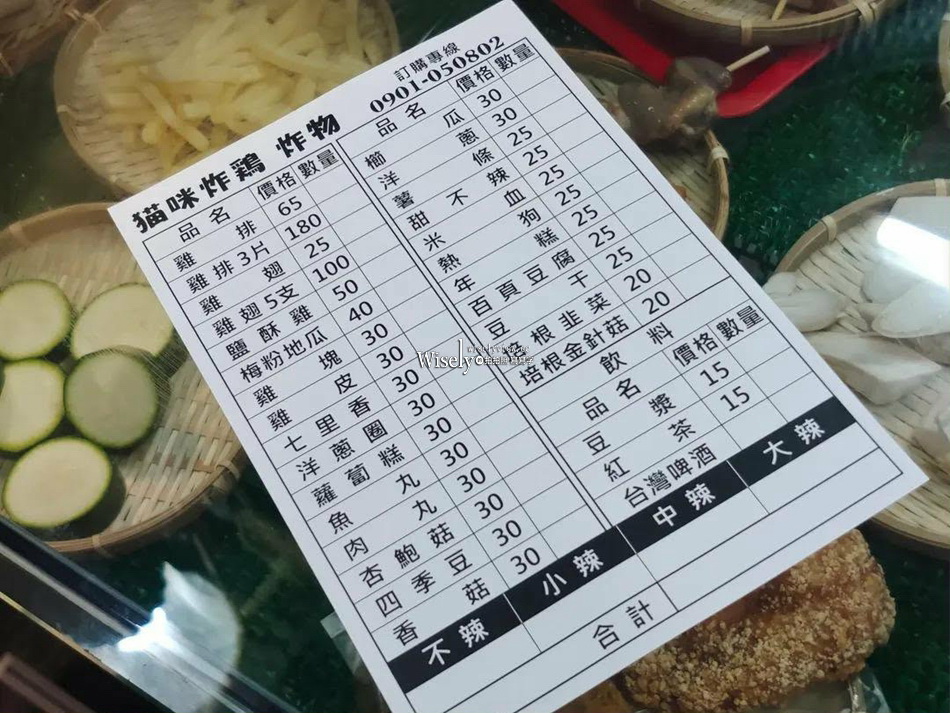 猫咪炸鶏 炸物
訂購專線
0901-050802
品名 價格 數量
雞排 65
雞排3片 180
雞翅 25
雞翅5支 100
鹽酥雞 50
梅粉地瓜 40
雞塊 30
雞皮 30
七里香 30
洋蔥圈 30
蘿蔔糕 30
魚丸 30
肉丸 30
杏鮑菇 30
四季豆 30
香菇 30
品名 價格 數量
櫛瓜 30
洋蔥 30
薯條 25
甜不辣 25
米血 25
熱狗 25
年糕 25
百頁豆腐 25
豆干 25
培根韭菜 20
培根金針菇 20
飲料
品名 價格 數量
豆漿 15
紅茶 15
台灣啤酒
不辣 小辣 中辣 大辣
合計
Wisely